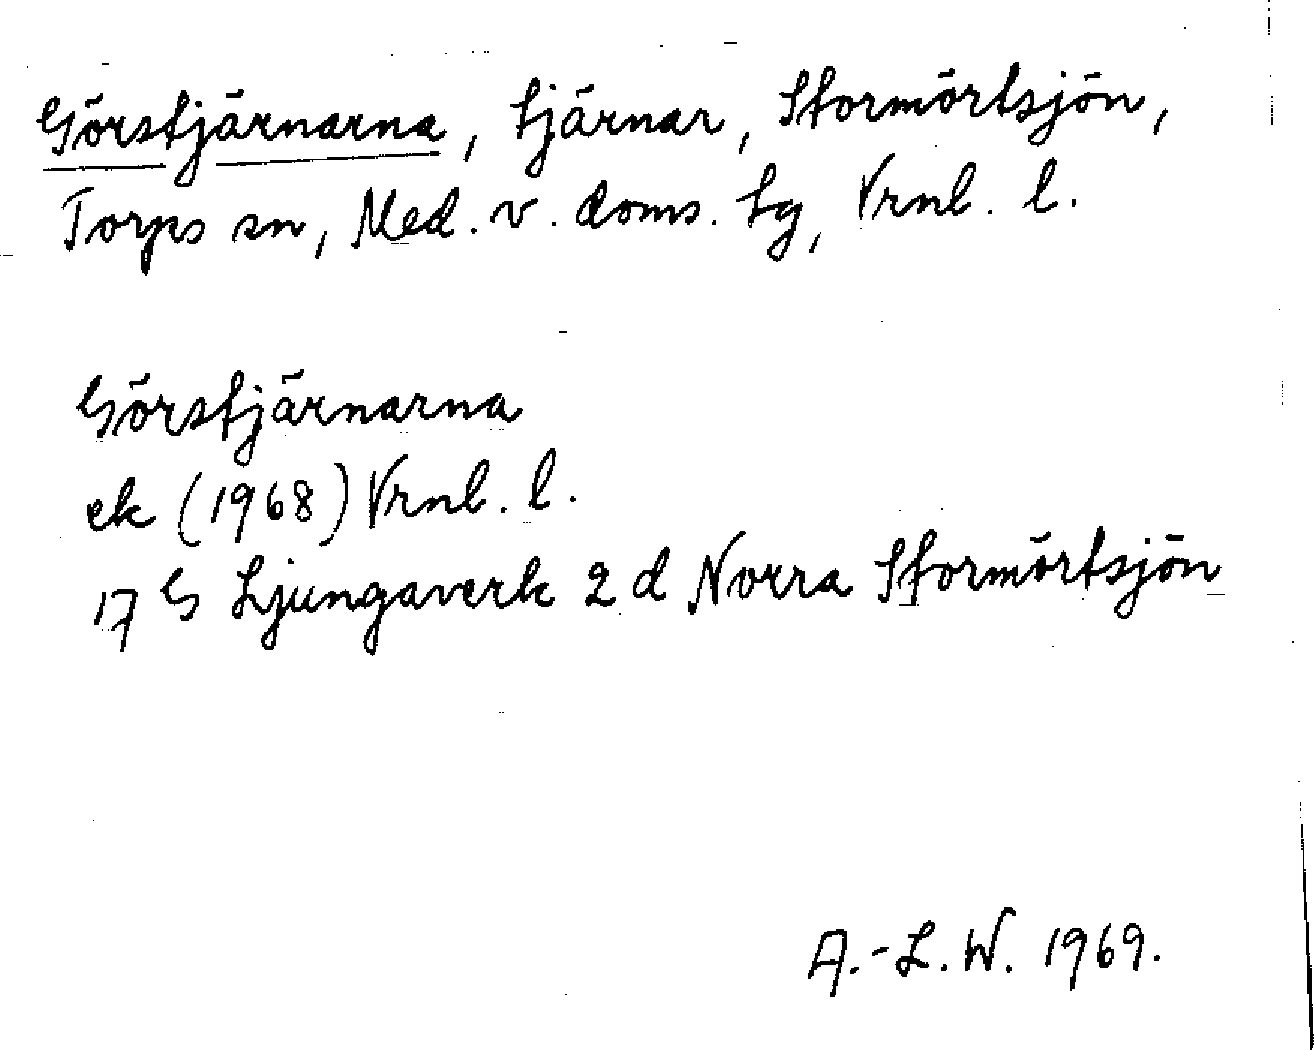 Görstjärnarna, tjärnar, Stormörtsjön,
Torps sn, Med. v. doms. tg, Vrnl. l.
Görstjärnarna
ek (1968) Vrnl. l.
17 G Ljungaverk 2 d Norra Stormörtsjön
A.-L. W. 1969.